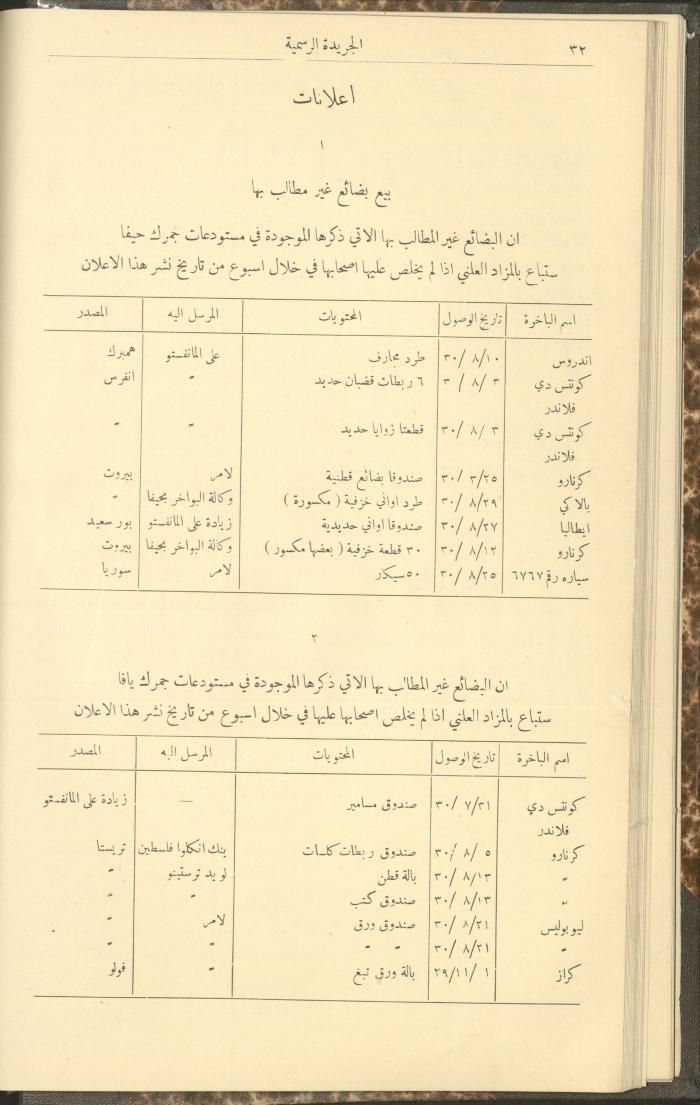 ٣٢
الجريدة الرسمية
اعلانات
١
بيع بضائع غير مطالب بها
ان البضائع غير المطالب بها الاتي ذكرها الموجودة في مستودعات جمرك حيفا
ستباع بالمزاد العلني اذا لم يخلص عليها اصحابها في خلال اسبوع من تاريخ نشر هذا الاعلان
اسم الباخرة تاريخ الوصول المحتويات المرسل اليه المصدر
اندروس ٣٠/ ٨/١٠ طرد مجارف على المانفستو همبرك
كونتس دي ٣ /٨/ ٣ ٦ ربطات قضبان حديد " انفرس
فلاندر
كونتس دي ٣٠/ ٨/ ٣ قطعتا زوايا حديد " "
فلاندر
كرنارو ٣٠/ ٣/٢٥ صندوقا بضائع قطنية لامر بيروت
بالاكي ٣٠/ ٨/٢٩ طرد اواني خزفية ( مكسورة ) وكالة البواخر بحيفا "
ايطاليا ٣٠/ ٨/٢٧ صندوقا اواني حديدية زيادة على المانفستو بور سعيد
كرنارو ٣٠/ ٨/١٢ ٣٠ قطعة خزفية ( بعضها مكسور ) وكالة البواخر بحيفا بيروت
سياره رقم ٦٧٦٧ ٣٠/ ٨/٢٥ ٥٠ سيكار لامر سوريا
٢
ان البضائع غير المطالب بها الاتي ذكرها الموجودة في مستودعات جمرك يافا
ستباع بالمزاد العلني اذا لم يخلص اصحابها عليها في خلال اسبوع من تاريخ نشر هذا الاعلان
اسم الباخرة تاريخ الوصول المحتويات المرسل اليه المصدر
كونتس دي ٣٠/ ٧/٢١ صندوق مسامير — زيادة على المانفستو
فلاندر
كرنارو ٣٠/ ٨/ ٥ صندوق ربطات كلسات بنك انكلوا فلسطين تريستا
" ٣٠/ ٨/١٣ بالة قطن لويد ترستينو "
" ٣٠/ ٨/١٣ صندوق كتب " "
ليوبوليس ٣٠/ ٨/٢١ صندوق ورق لامر "
" ٣٠/ ٨/٢١ " " " "
كراز ٢٩/١١/ ١ بالة ورق تبغ " فولو